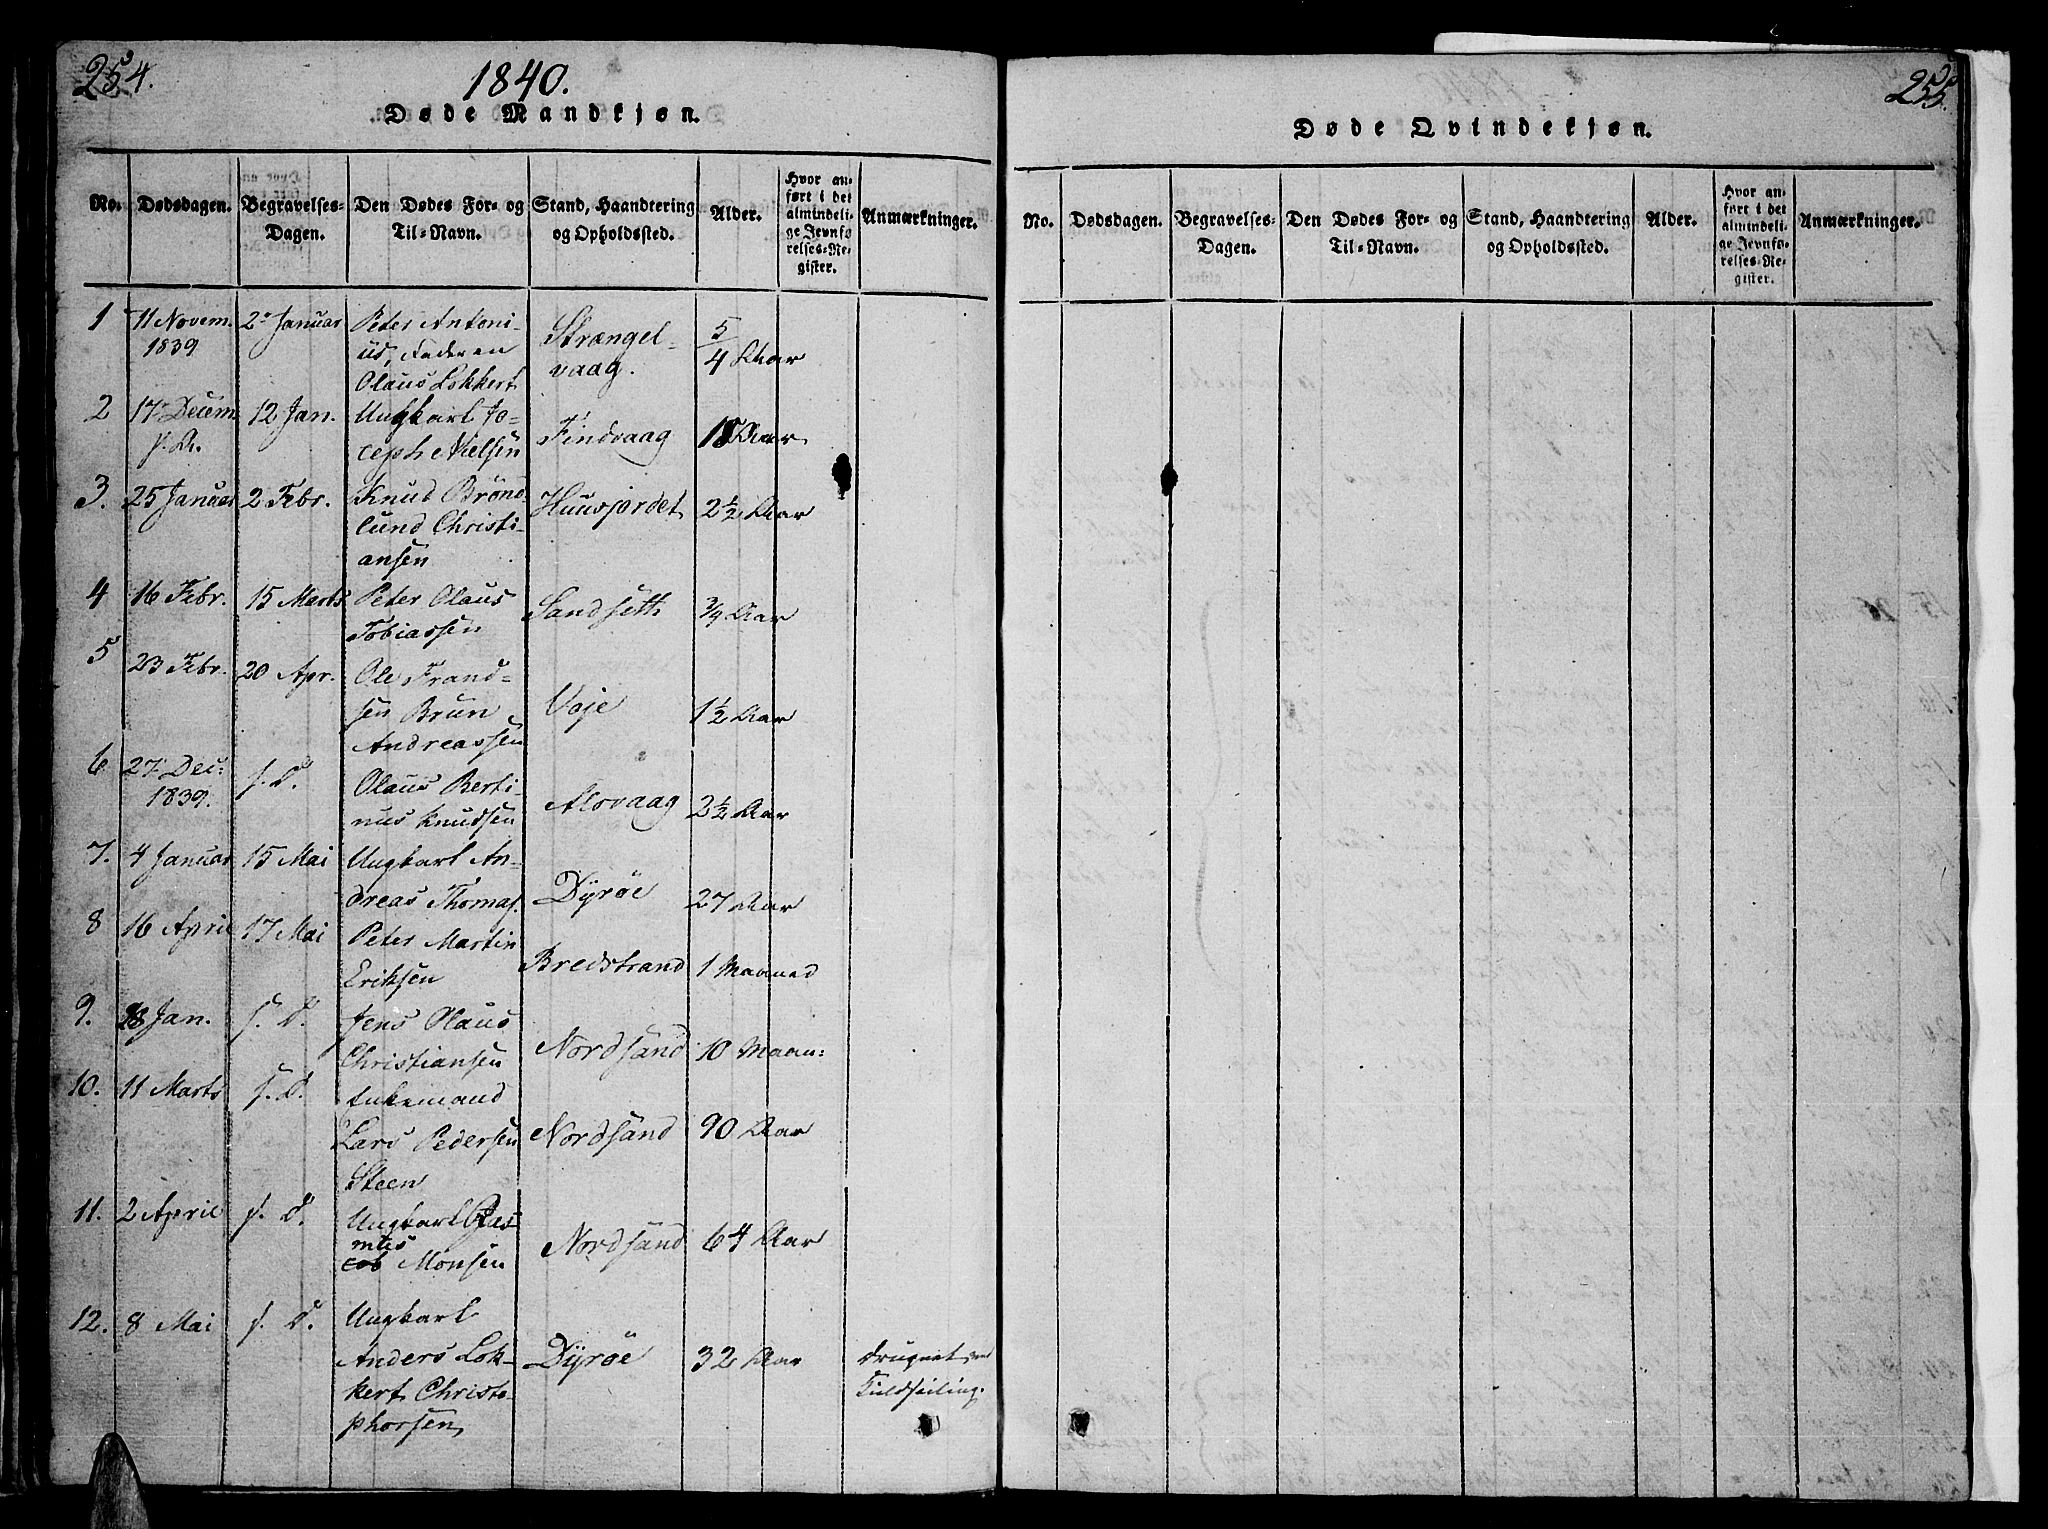 254.
1840.
Døde Mandkjøn.
No.
Dødsdagen.
Begravelses-
Dagen.
Den Dødes For- og
Til-Navn.
Stand, Haandtering
og Opholdssted.
Alder.
Hvor an-
ført i det
almindeli-
ge Jevnfø-
relses-Re-
gister.
Anmærkninger.
1
11 Novem.
1839
2 Januar
Peter Antoni-
us, Faderen
Olaus Lokkert
Strængel-
vaag.
5/4 Aar
2
17 Decem
f. A.
12 Jan.
Ungkarl Jo-
ceph Nielsen
Findvaag
18 Aar
3.
25 Januar
2 Febr.
Knud Brøns-
lund Christi-
ansen
Huusjordet
2½ Aar
4
16 Febr.
15 Marts
Peter Olaus
Tobiassen
Sandsett
3/4 Aar
5
23 Febr.
20 Apr.
Ole Frand-
sen Brun
Andreassen
Voje
1½ Aar
6
27 Dec:
1839.
s. D.
Olaus Berti-
nus Knudsen
Alsvaag
2½ Aar
7.
4 Januar
15 Mai
Ungkarl An-
dreas Thomas.
Dyrøe
27 Aar
8
16 April
17 Mai
Peter Martin
Eriksen
Bredstrand
1 Maaned
9.
28 Jan.
s. D.
Jens Olaus
Christiansen
Nordsand
10 Maan:
10.
11 Marts
s. D.
Enkemand
Lars Pedersen
Steen
Nordsand
90 Aar
11.
2 April
s. D.
Ungkarl Ras
mus
cob Monsen
Nordsand
64 Aar
12.
8 Mai
s. D.
Ungkarl
Anders Lok-
kert Christo-
phorsen
Dyrøe
32 Aar
druknet ved
Kuldseiling.
255.
Døde Qvindekjøn.
No.
Dødsdagen.
Begravelses-
Dagen.
Den Dødes For- og
Til-Navn.
Stand, Haandtering
og Opholdssted.
Alder.
Hvor an-
ført i det
almindeli-
ge Jevnfø-
relses-Re-
gister.
Anmærkninger.